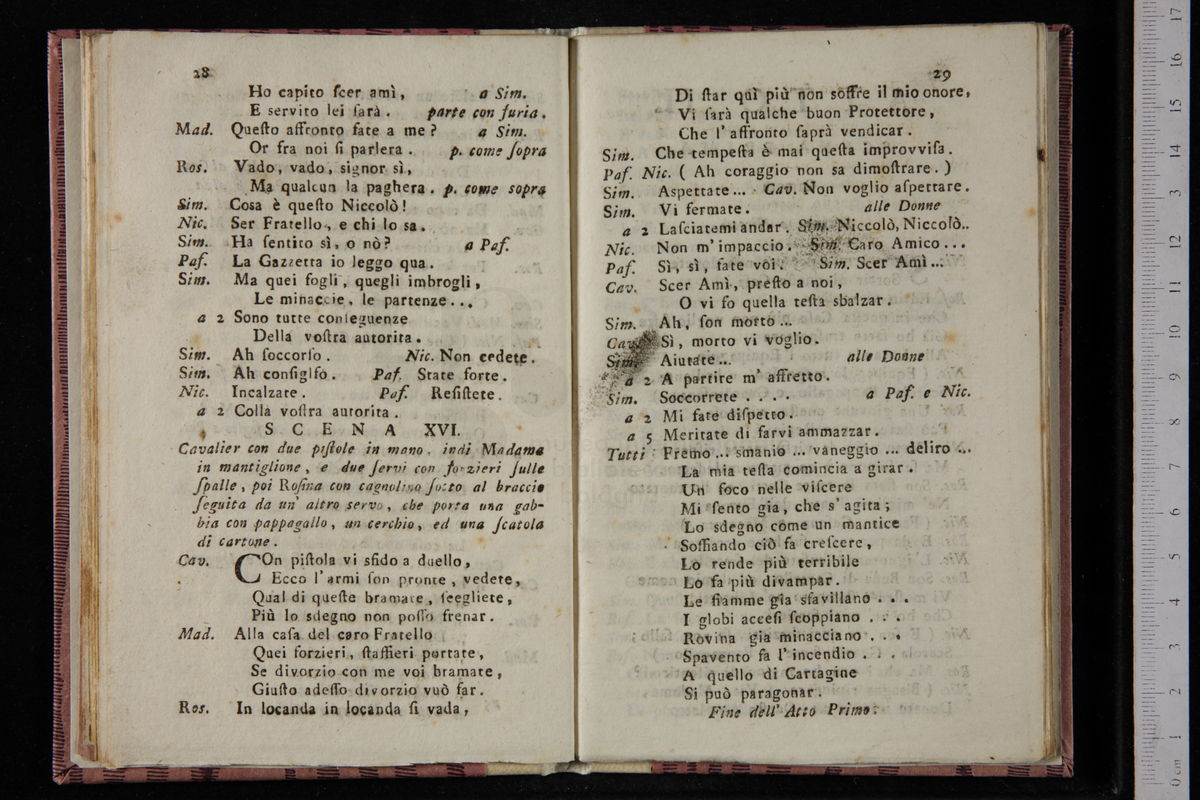 28
Ho capito ſcer amì, a Sim.
E servito lei ſarà. parte con furia.
Mad. Queſto affronto fate a me? a Sim.
Or fra noi ſi parlera. p. come ſopra
Ros. Vado, vado, signor sì,
Ma qualcun la paghera. p. come sopra
Sim. Cosa è queſto Niccolò!
Nic. Ser Fratello, e chi lo sa.
Sim. Ha ſentito sì, o nò? a Paſ.
Paſ. La Gazzetta io leggo qua.
Sim. Ma quei fogli, quegli imbrogli,
Le minaccie, le partenze...
a 2 Sono tutte conſeguenze
Della voſtra autorita.
Sim. Ah ſoccorſo. Nic. Non cedete.
Sim. Ah conſiglſo. Paſ. State forte.
Nic. Incalzate. Paſ. Reſiſtete.
a 2 Colla voſtra autorita.
SCENA XVI.
Cavalier con due piſtole in mano, indi Madama
in mantiglione, e due ſervi con forzieri ſulle
ſpalle, poi Roſina con cagnolino ſotto al braccio
ſeguita da un' altro servo, che porta una gab-
bia con pappagallo, un cerchio, ed una ſcatola
di cartone.
Cav. COn piſtola vi sfido a duello,
Ecco l'armi ſon pronte, vedete,
Qual di queſte bramate, ſcegliete,
Più lo sdegno non poſſo frenar.
Mad. Alla caſa del caro Fratello
Quei forzieri, ſtaffieri portate,
Se divorzio con me voi bramate,
Giuſto adeſſo divorzio vuò far.
Ros. In locanda in locanda ſi vada,
29
Di ſtar quì più non soffre il mio onore,
Vi ſarà qualche buon Protettore,
Che l'affronto ſaprà vendicar.
Sim. Che tempeſta è mai queſta improvviſa.
Paſ. Nic. ( Ah coraggio non sa dimoſtrare. )
Sim. Aspettate... Cav. Non voglio aſpettare.
Sim. Vi fermate. alle Donne
a 2 Laſciatemi andar. Sim. Niccolò, Niccolò..
Nic. Non m'impaccio. Sim. Caro Amico...
Paſ. Sì, sì, fate voi. Sim. Scer Amì...
Cav. Scer Amì, preſto a noi,
O vi fo quella teſta sbalzar.
Sim. Ah, ſon morto...
Cav. Sì, morto vi voglio.
Sim. Aiutate... alle Donne
a 2 A partire m' affretto.
Sim. Soccorrete.... a Paſ. e Nic.
a 2 Mi fate diſpetto.
a 5 Meritate di farvi ammazzar.
Tutti Fremo... smanio... vaneggio... deliro...
La mia teſta comincia a girar.
Un foco nelle viſcere
Mi ſento gia, che s'agita;
Lo sdegno come un mantice
Soffiando ciò fa creſcere,
Lo rende più terribile
Lo fa più divampar.
Le fiamme gia sfavillano...
I globi acceſi ſcoppiano...
Rovina gia minacciano...
Spavento fa l'incendio...
A quello di Cartagine
Si può paragonar.
Fine dell' Atto Primo.